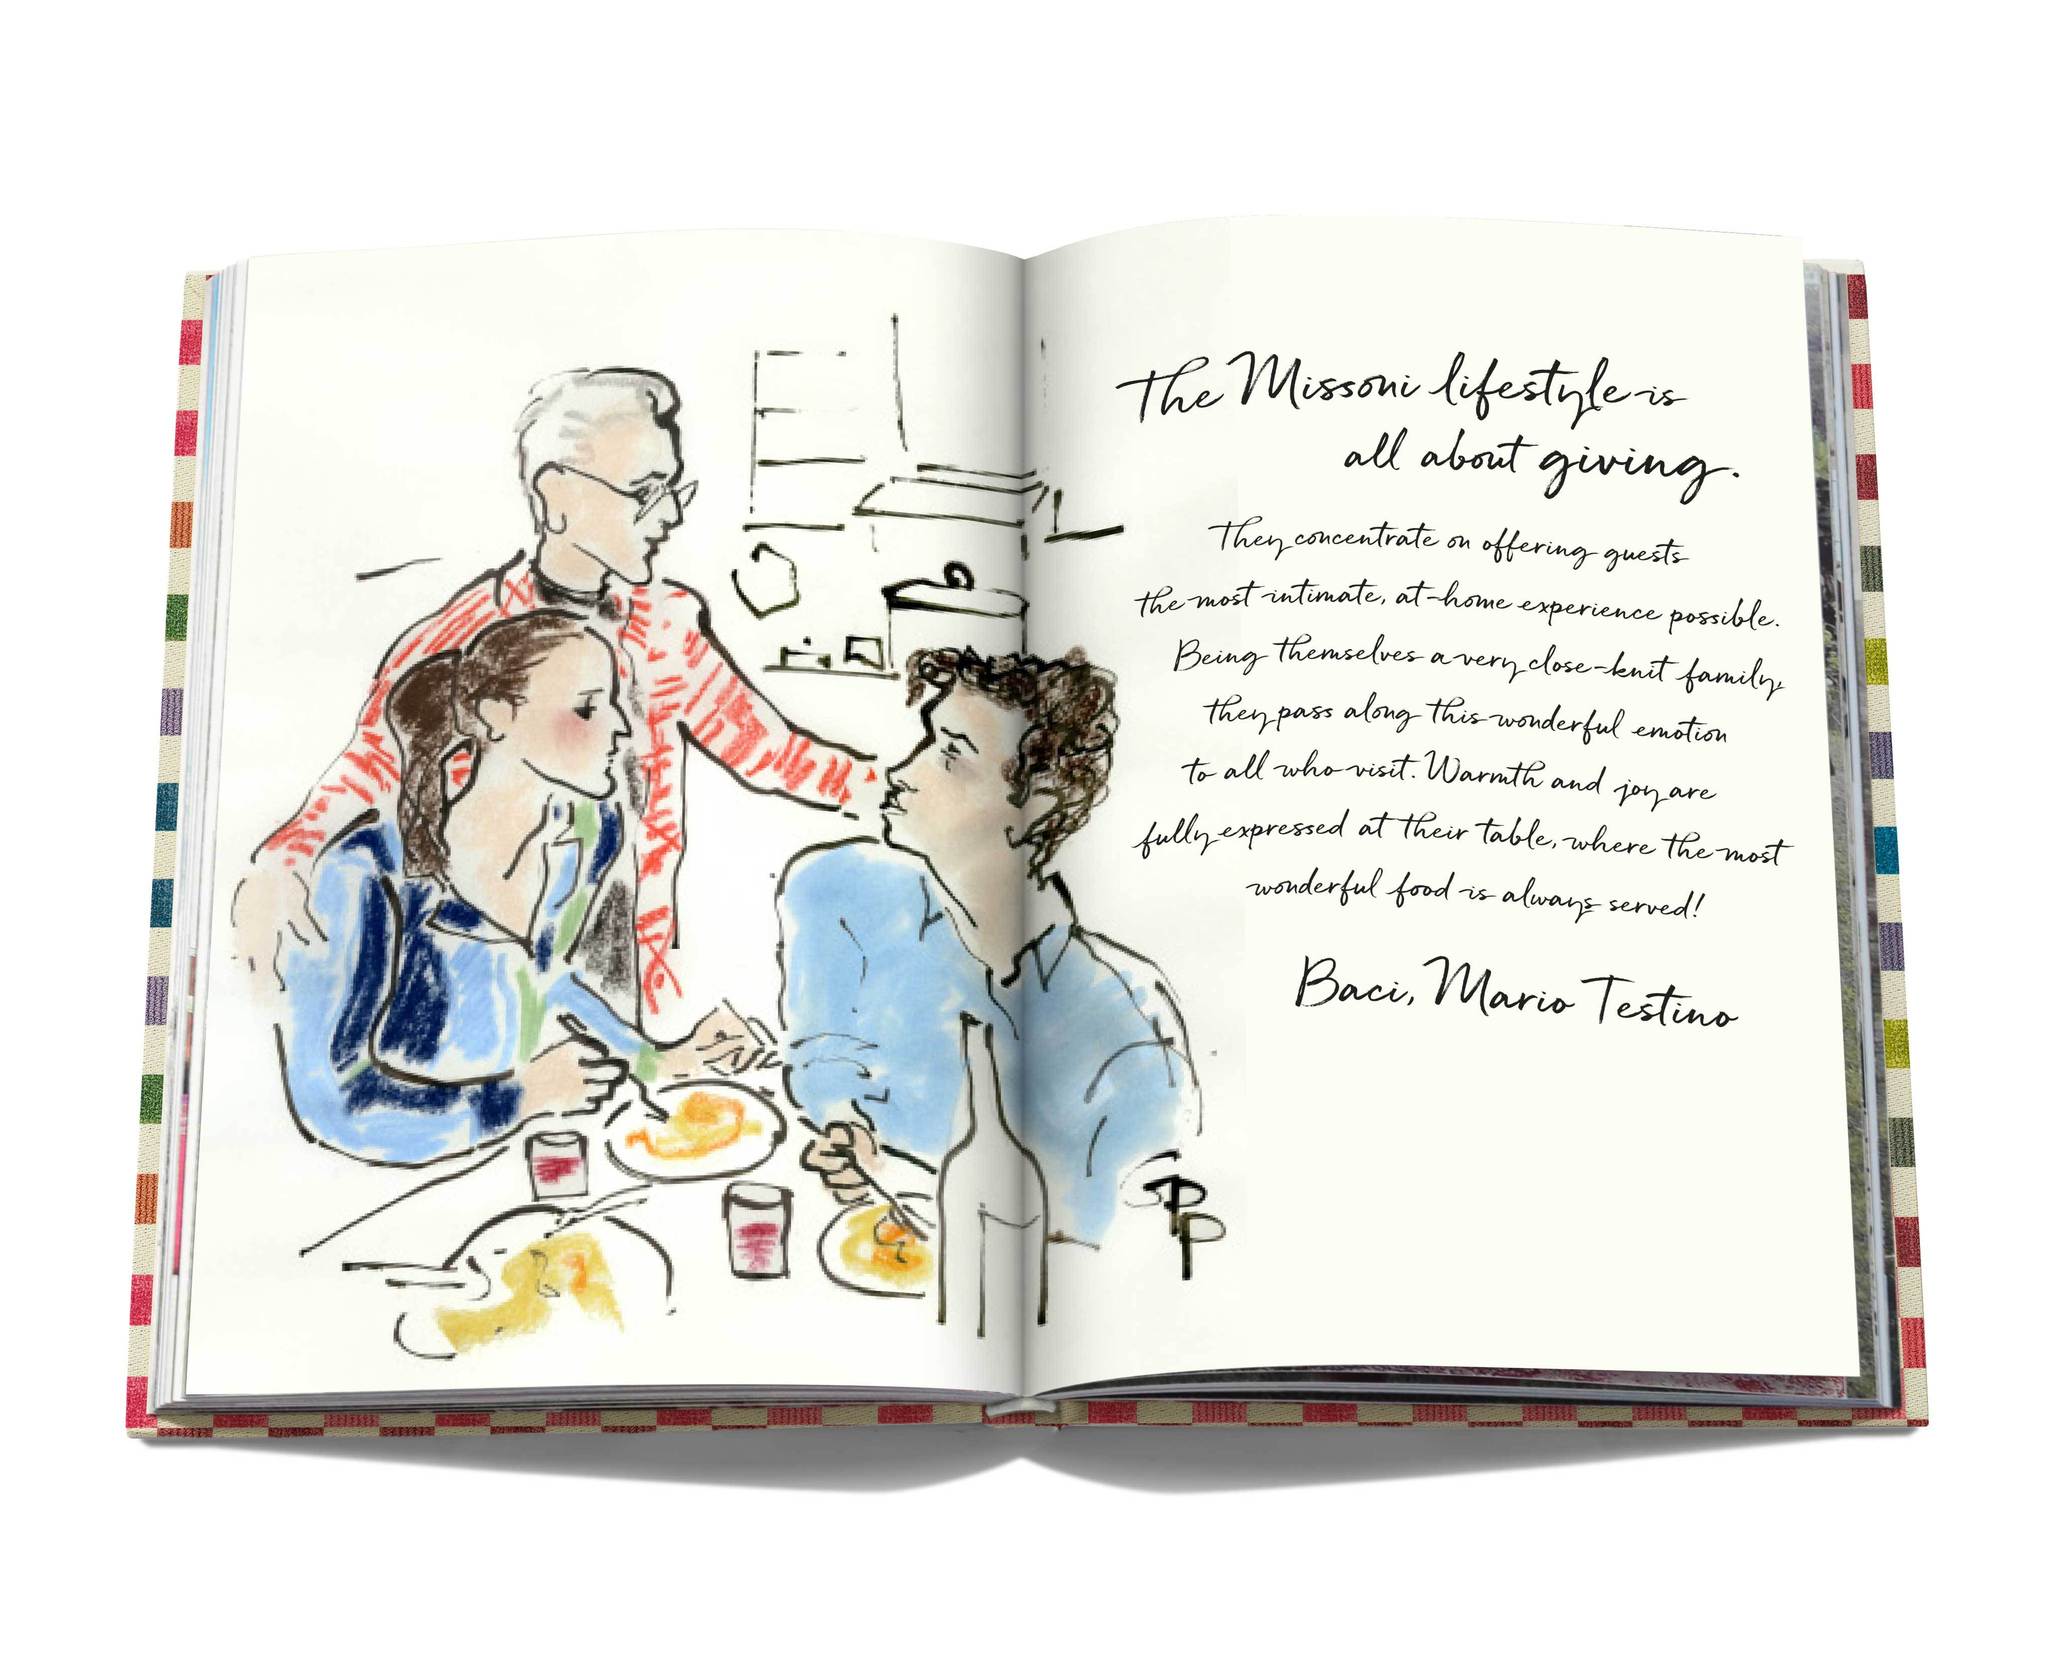 The Missoni lifestyle is
all about giving.
They concentrate on offering guests
the most intimate, at-home experience possible.
Being themselves a very close-knit family,
they pass along this wonderful emotion
to all who visit. Warmth and joy are
fully expressed at their table, where the most
wonderful food is always served!
Baci, Mario Testino
GPP